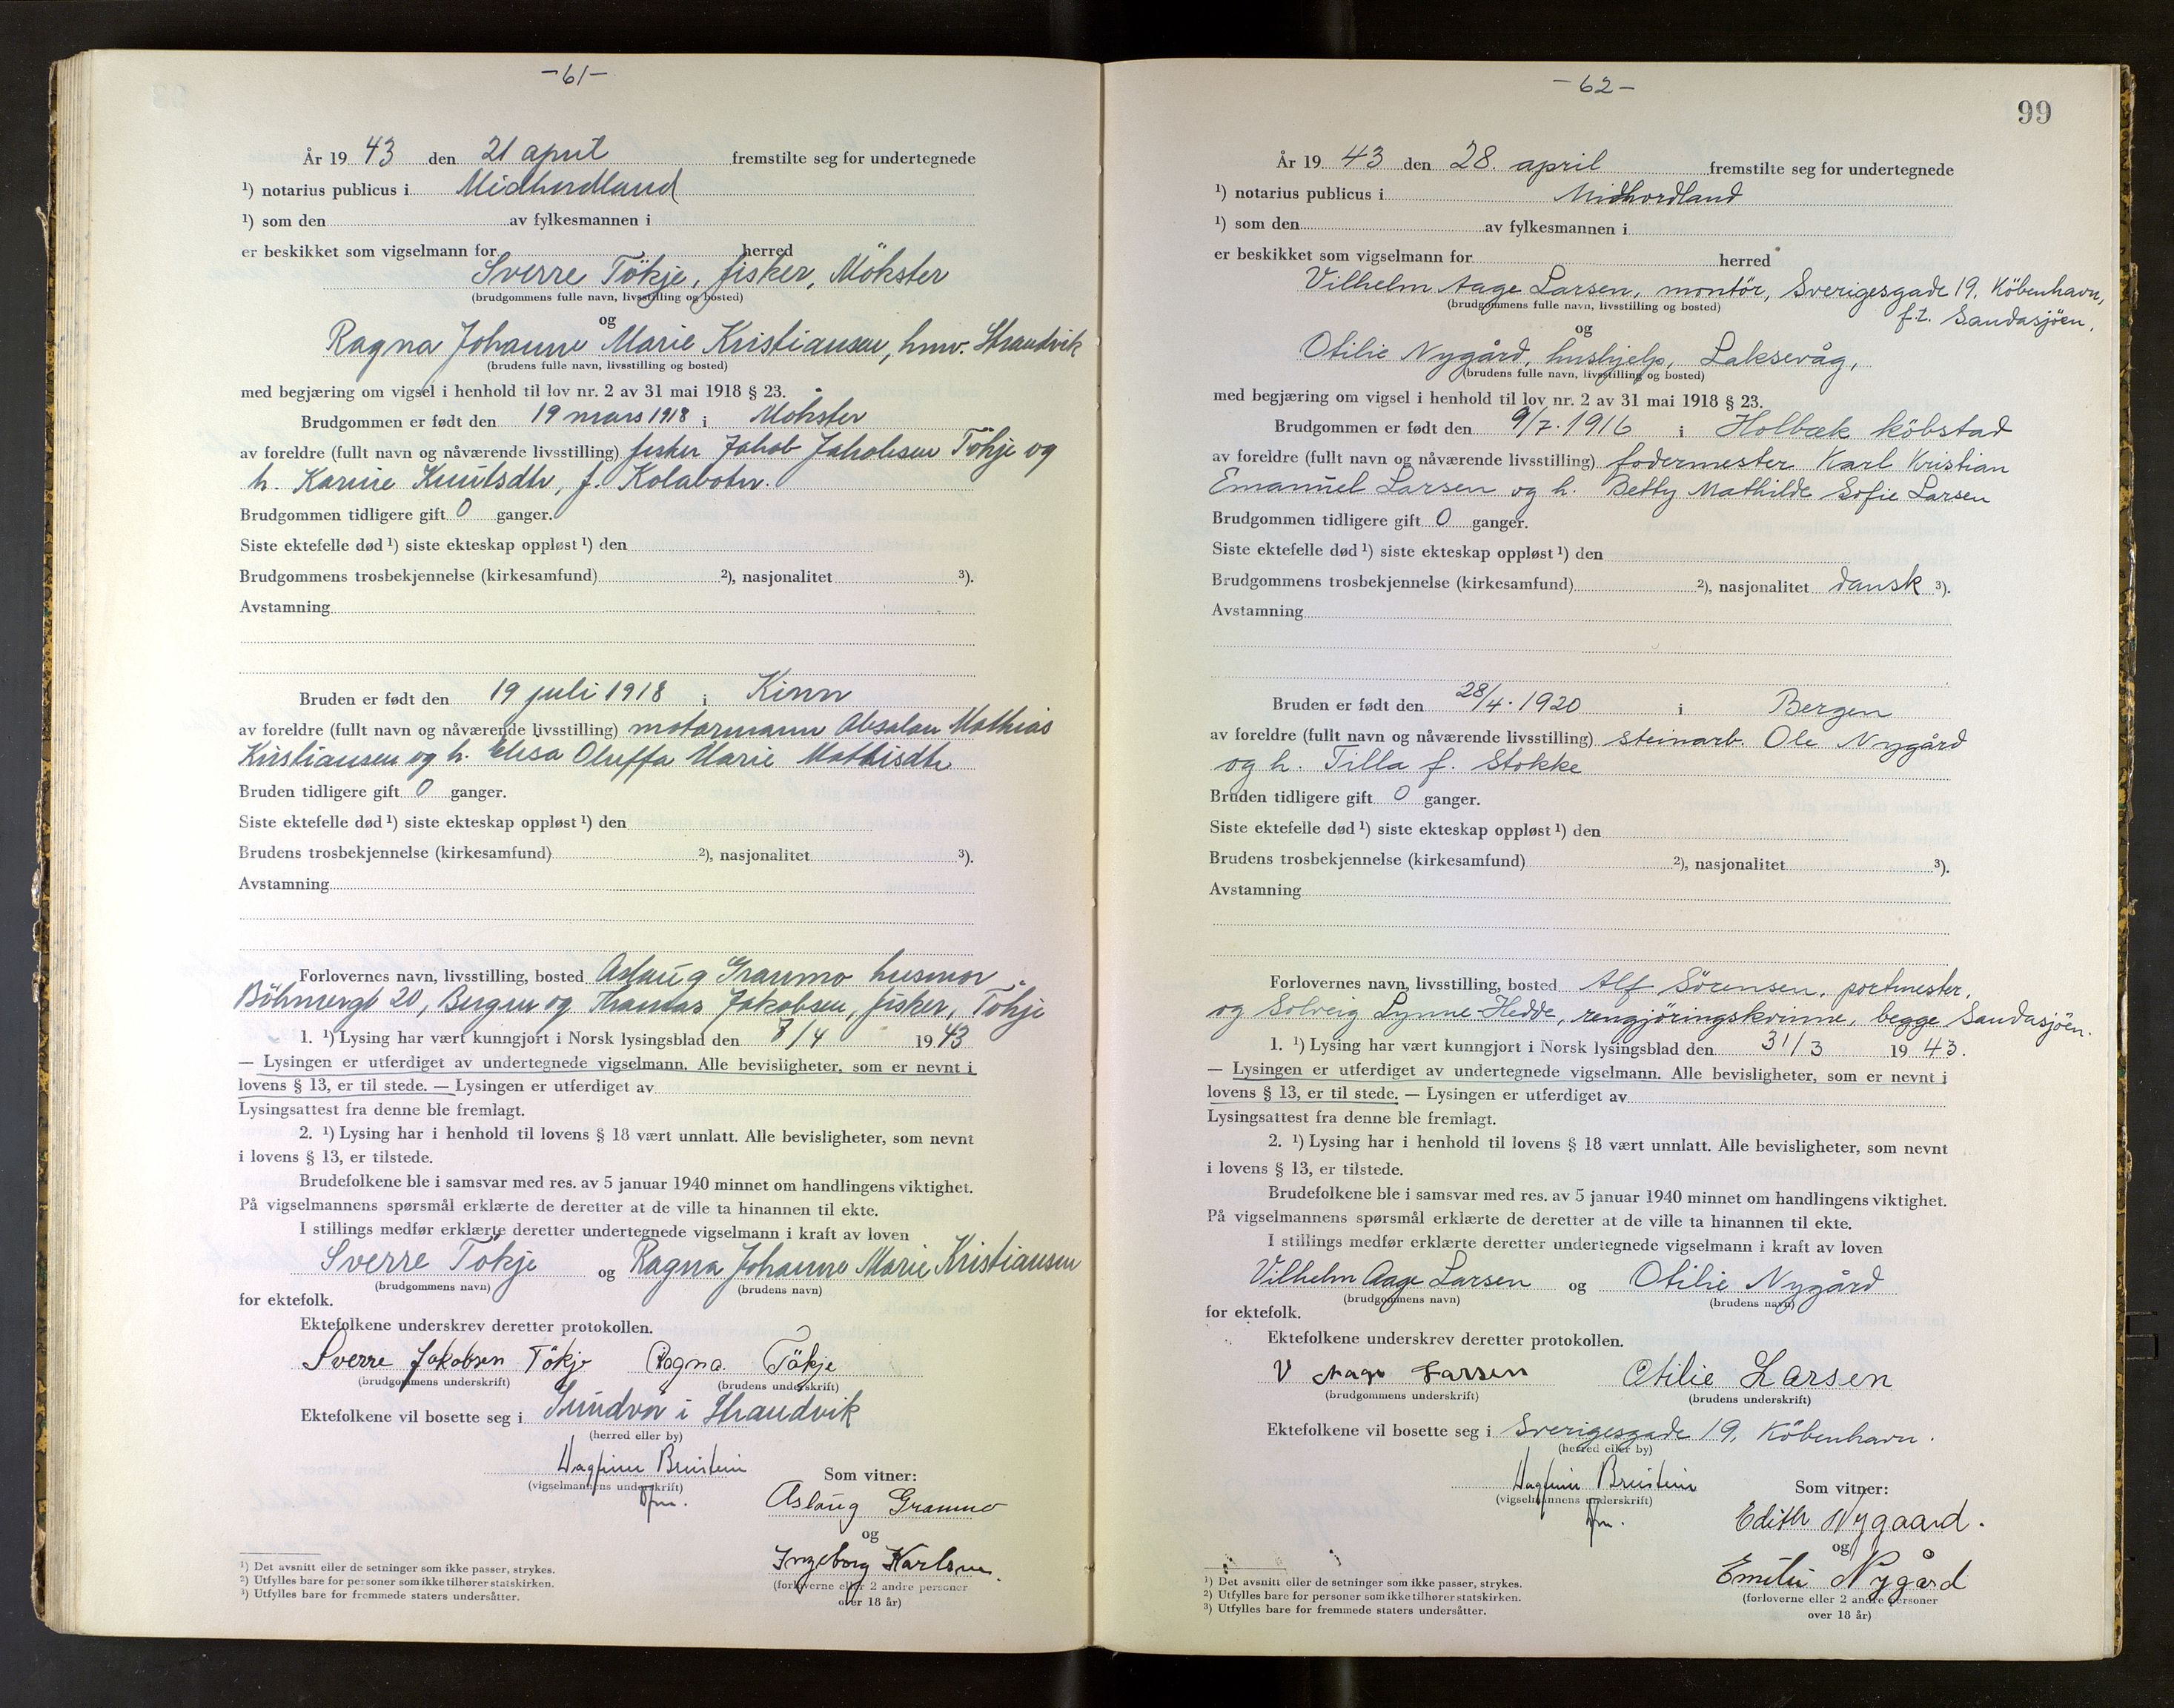 -61-
År 19 43 den 21 april fremstilte seg for undertegnede
¹) notarius publicus i Midhordland
¹) som den av fylkesmannen i
er beskikket som vigselmann for herred
Sverre Tökje, fisker, Mökster
(brudgommens fulle navn, livsstilling og bosted)
og
Ragna Johanne Marie Kristiansen, hmv. Strandvik
(brudens fulle navn, livsstilling og bosted)
med begjæring om vigsel i henhold til lov nr. 2 av 31 mai 1918 § 23.
Brudgommen er født den 19 mars 1918 i Mökster
av foreldre (fullt navn og nåværende livsstilling) fisker Jakob Jakobsen Tökje og
h. Karine Knutsdtr, f. Kolabotn.
Brudgommen tidligere gift 0 ganger.
Siste ektefelle død ¹) siste ekteskap oppløst ¹) den
Brudgommens trosbekjennelse (kirkesamfund) ²), nasjonalitet ³).
Avstamning
Bruden er født den 19 juli 1918 i Kinn
av foreldre (fullt navn og nåværende livsstilling) motormann Absalon Mathias
Kristiansen og h. Elisa Oluffa Marie Mathisdtr
Bruden tidligere gift 0 ganger.
Siste ektefelle død ¹) siste ekteskap oppløst ¹) den
Brudens trosbekjennelse (kirkesamfund) ²), nasjonalitet ³).
Avstamning
Forlovernes navn, livsstilling, bosted Aslaug Granmo husmor
Böhmergt 20, Bergen og Thomas Jakobsen, fisker, Tökje
1. ¹) Lysing har vært kunngjort i Norsk lysingsblad den 7/4 19 43
— Lysingen er utferdiget av undertegnede vigselmann. Alle bevisligheter, som er nevnt i
lovens § 13, er til stede. — Lysingen er utferdiget av
Lysingsattest fra denne ble fremlagt.
2. ¹) Lysing har i henhold til lovens § 18 vært unnlatt. Alle bevisligheter, som nevnt
i lovens § 13, er tilstede.
Brudefolkene ble i samsvar med res. av 5 januar 1940 minnet om handlingens viktighet.
På vigselmannens spørsmål erklærte de deretter at de ville ta hinannen til ekte.
I stillings medfør erklærte deretter undertegnede vigselmann i kraft av loven
Sverre Tökje og Ragna Johanne Marie Kristiansen
(brudgommens navn) (brudens navn)
for ektefolk.
Ektefolkene underskrev deretter protokollen.
Sverre Jakobsen Tökje Ragna Tökje
(brudgommens underskrift) (brudens underskrift)
Ektefolkene vil bosette seg i Sundvor i Strandvik
(herred eller by)
Dagfinn Breistein
(vigselmannens underskrift)
dfm.
Som vitner:
Aslaug Granmo
og
Ingeborg Karlsen.
(forloverne eller 2 andre personer
over 18 år)
¹) Det avsnitt eller de setninger som ikke passer, strykes.
²) Utfylles bare for personer som ikke tilhører statskirken.
³) Utfylles bare for fremmede staters undersåtter.
-62-
99
År 19 43 den 28. april fremstilte seg for undertegnede
¹) notarius publicus i Midhordland
¹) som den av fylkesmannen i
er beskikket som vigselmann for herred
Vilhelm Aage Larsen, montör, Sverigesgade 19, Köbenhavn,
f.t. Sandasjöen,
(brudgommens fulle navn, livsstilling og bosted)
og
Otilie Nygård, hushjelp, Laksevåg,
(brudens fulle navn, livsstilling og bosted)
med begjæring om vigsel i henhold til lov nr. 2 av 31 mai 1918 § 23.
Brudgommen er født den 9/7.1916 i Holbæk köbstad
av foreldre (fullt navn og nåværende livsstilling) fodermester Karl Kristian
Emanuel Larsen og h. Betty Mathilde Sofie Larsen
Brudgommen tidligere gift 0 ganger.
Siste ektefelle død ¹) siste ekteskap oppløst ¹) den
Brudgommens trosbekjennelse (kirkesamfund) ²), nasjonalitet dansk ³).
Avstamning
Bruden er født den 28/4.1920 i Bergen
av foreldre (fullt navn og nåværende livsstilling) steinarb. Ole Nygård
og h. Tilla f. Stokke
Bruden tidligere gift 0 ganger.
Siste ektefelle død ¹) siste ekteskap oppløst ¹) den
Brudens trosbekjennelse (kirkesamfund) ²), nasjonalitet ³).
Avstamning
Forlovernes navn, livsstilling, bosted Alf Sörensen, portmester,
og Solveig Lynne-Hedde, rengjöringskvinne, begge Sandasjöen.
1. ¹) Lysing har vært kunngjort i Norsk lysingsblad den 31/3 19 43.
— Lysingen er utferdiget av undertegnede vigselmann. Alle bevisligheter, som er nevnt i
lovens § 13, er til stede. — Lysingen er utferdiget av
Lysingsattest fra denne ble fremlagt.
2. ¹) Lysing har i henhold til lovens § 18 vært unnlatt. Alle bevisligheter, som nevnt
i lovens § 13, er tilstede.
Brudefolkene ble i samsvar med res. av 5 januar 1940 minnet om handlingens viktighet.
På vigselmannens spørsmål erklærte de deretter at de ville ta hinannen til ekte.
I stillings medfør erklærte deretter undertegnede vigselmann i kraft av loven
Vilhelm Aage Larsen og Otilie Nygård
(brudgommens navn) (brudens navn)
for ektefolk.
Ektefolkene underskrev deretter protokollen.
V Aage Larsen Otilie Larsen
(brudgommens underskrift) (brudens underskrift)
Ektefolkene vil bosette seg i Sverigesgade 19, Köbenhavn.
(herred eller by)
Dagfinn Breistein
(vigselmannens underskrift)
dfm.
Som vitner:
Edith Nygaard.
og
Emilie Nygård
(forloverne eller 2 andre personer
over 18 år)
¹) Det avsnitt eller de setninger som ikke passer, strykes.
²) Utfylles bare for personer som ikke tilhører statskirken.
³) Utfylles bare for fremmede staters undersåtter.